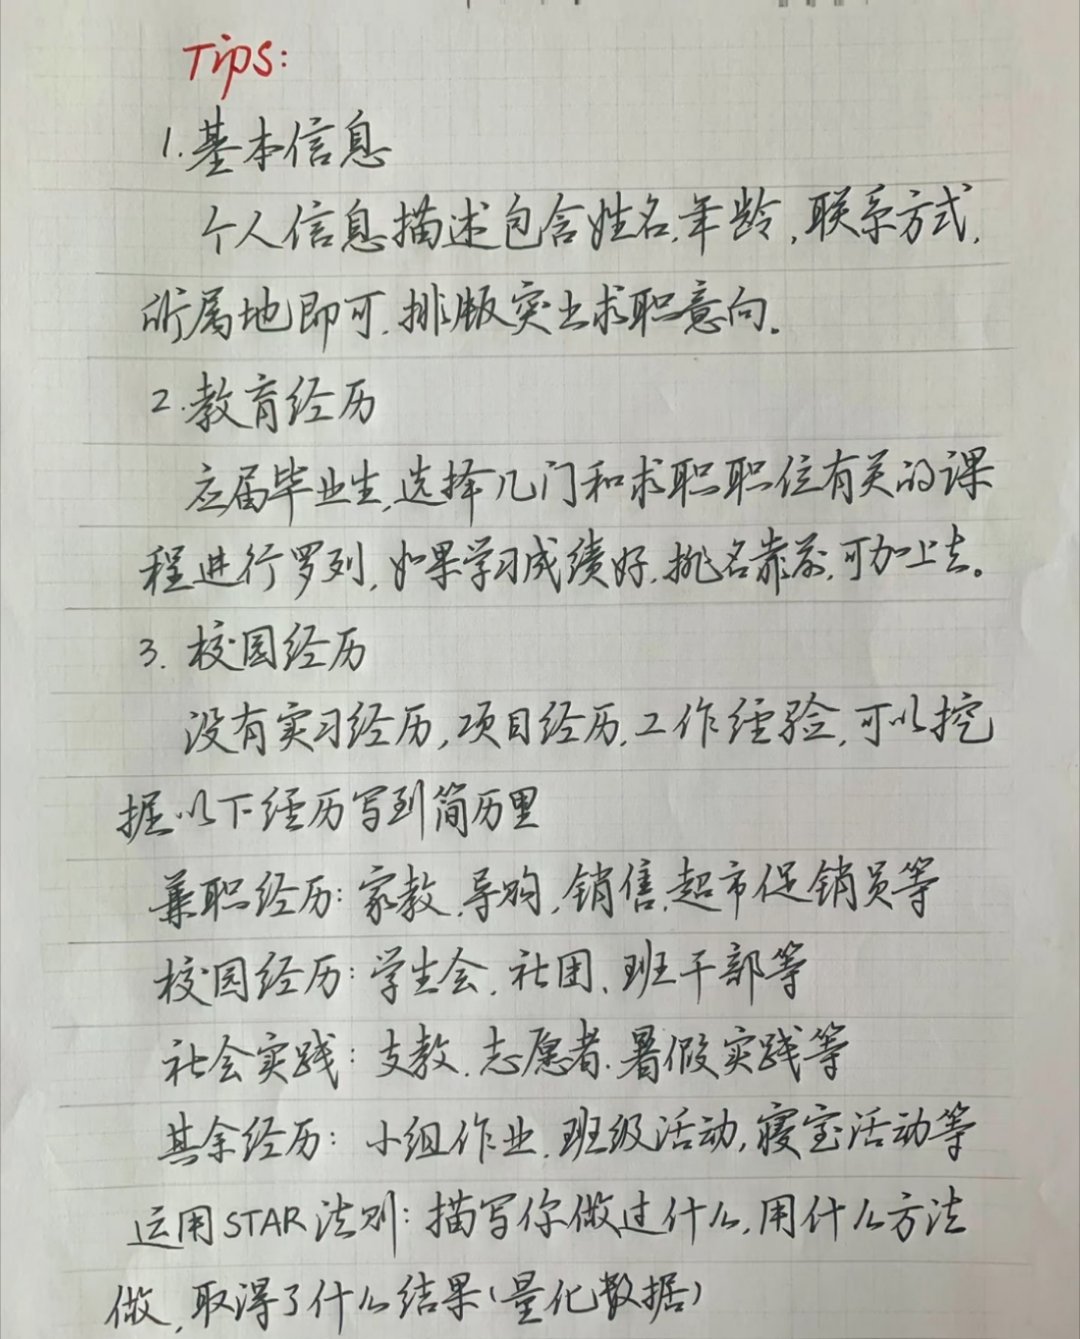 Tips:
1.基本信息
个人信息描述包含姓名、年龄,联系方式,
所属地即可,排版突出求职意向。
2.教育经历
应届毕业生,选择几门和求职职位有关的课
程进行罗列,如果学习成绩好,排名靠前,可加上去。
3.校园经历
没有实习经历,项目经历,工作经验,可以挖
掘以下经历写到简历里
兼职经历:家教、导购,销售、超市促销员等
校园经历:学生会、社团、班干部等
社会实践:支教、志愿者、暑假实践等
其余经历:小组作业、班级活动,寝室活动等
运用STAR法则:描写你做过什么,用什么方法
做,取得了什么结果(量化数据)